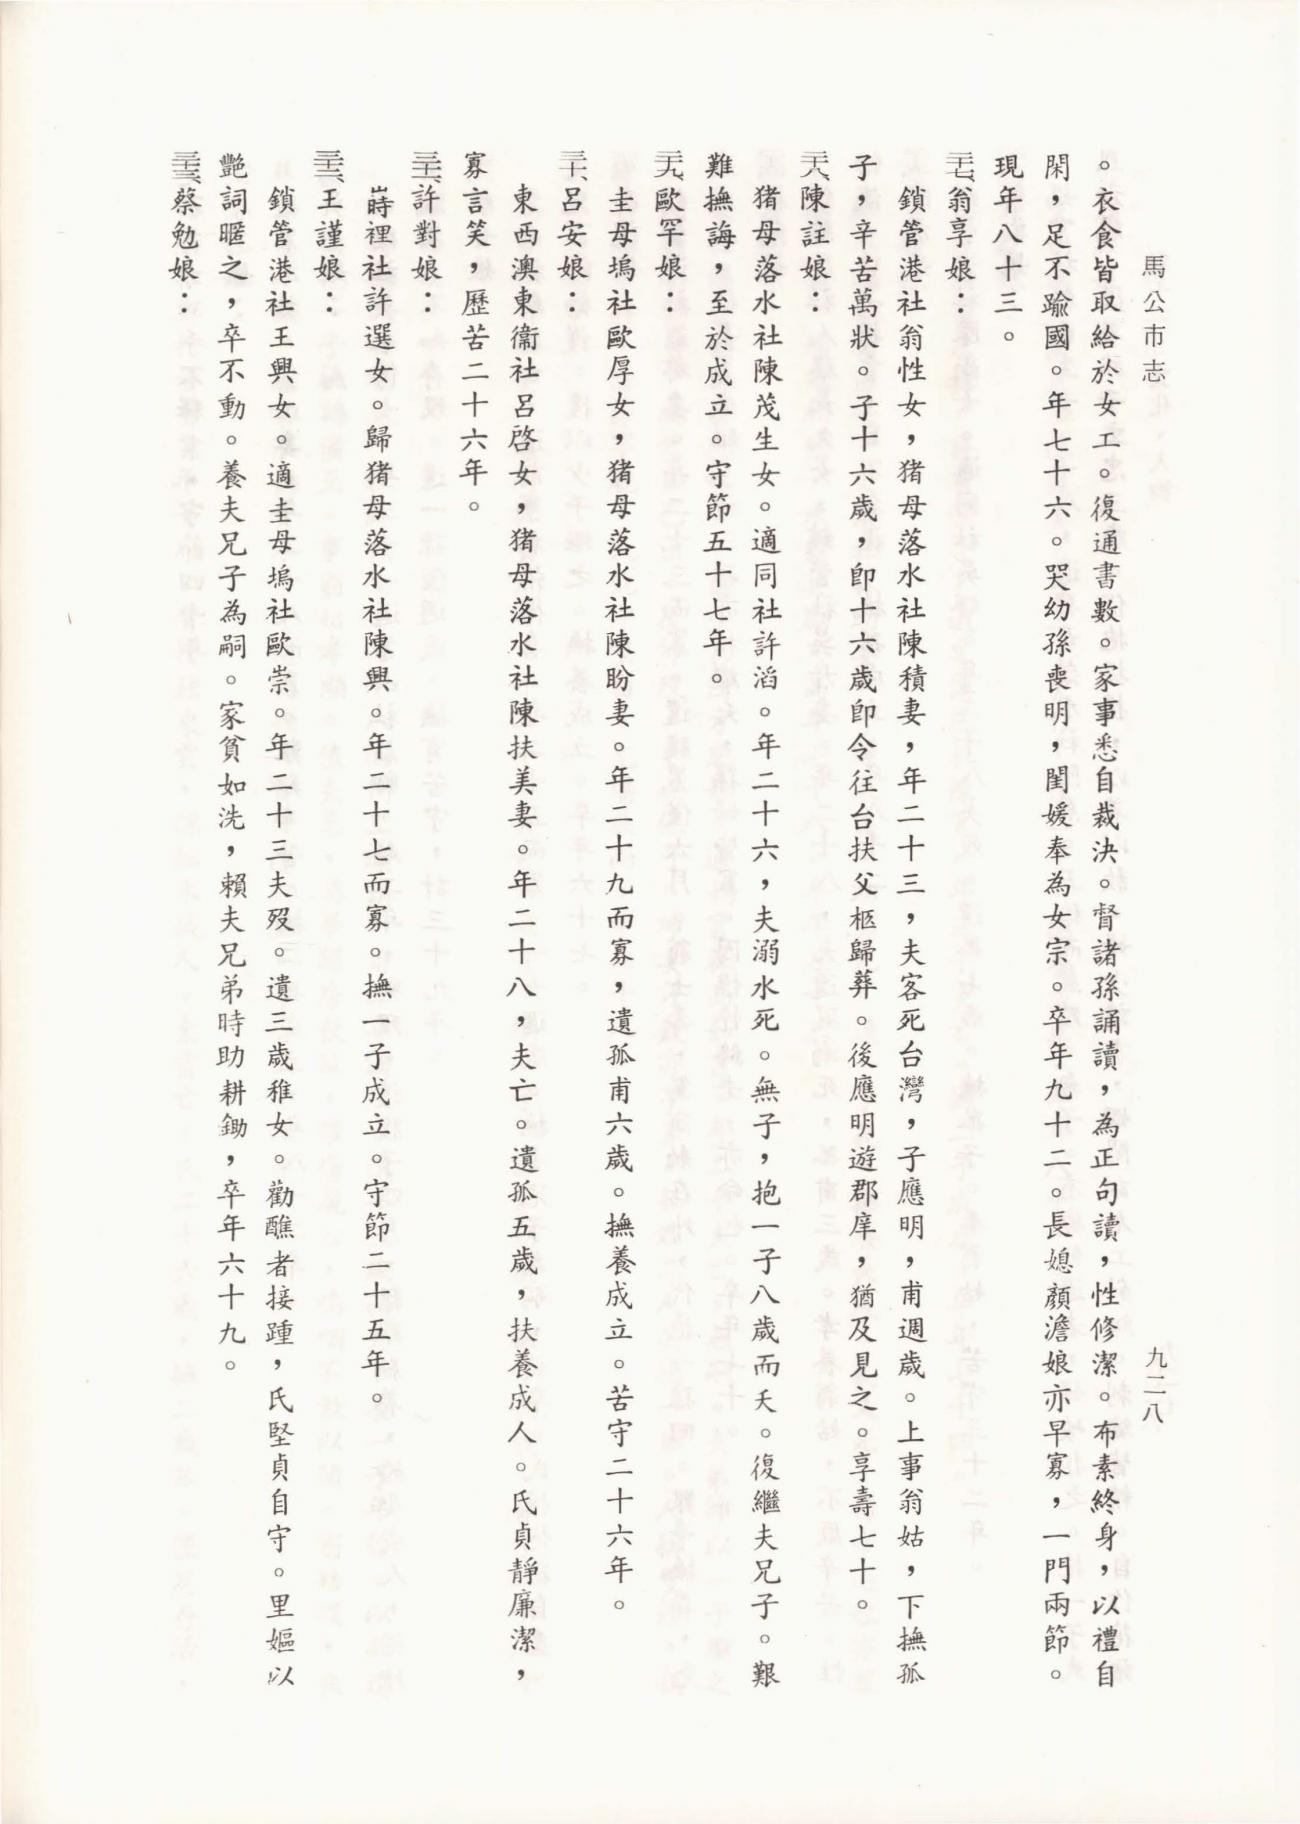 馬公市志
九二八
。衣食皆取給於女工。復通書數。家事悉自裁決。督諸孫誦讀，為正句讀，性修潔。布素終身，以禮自
閑，足不踰國。年七十六。哭幼孫喪明，閨媛奉為女宗。卒年九十二。長媳顏澹娘亦早寡，一門兩節。
現年八十三。
二十七、翁享娘：
鎖管港社翁性女，猪母落水社陳積妻，年二十三，夫客死台灣，子應明，甫週歲。上事翁姑，下撫孤
子，辛苦萬狀。子十六歲，即十六歲即令往台扶父柩歸葬。後應明遊郡庠，猶及見之。享壽七十。
二十八、陳註娘：
猪母落水社陳茂生女。適同社許滔。年二十六，夫溺水死。無子，抱一子八歲而夭。復繼夫兄子。艱
難撫誨，至於成立。守節五十七年。
二十九、歐罕娘：
圭母塢社歐厚女，猪母落水社陳盼妻。年二十九而寡，遺孤甫六歲。撫養成立。苦守二十六年。
三十、呂安娘：
東西澳東衞社呂啓女，猪母落水社陳扶美妻。年二十八，夫亡。遺孤五歲，扶養成人。氏貞靜廉潔，
寡言笑，歷苦二十六年。
三十一、許對娘：
嵵裡社許選女。歸猪母落水社陳興。年二十七而寡。撫一子成立。守節二十五年。
三十二、王謹娘：
鎖管港社王興女。適圭母塢社歐崇。年二十三夫歿。遺三歲稚女。勸醮者接踵，氏堅貞自守。里嫗以
艷詞暱之，卒不動。養夫兄子為嗣。家貧如洗，賴夫兄弟時助耕鋤，卒年六十九。
三十三、蔡勉娘：